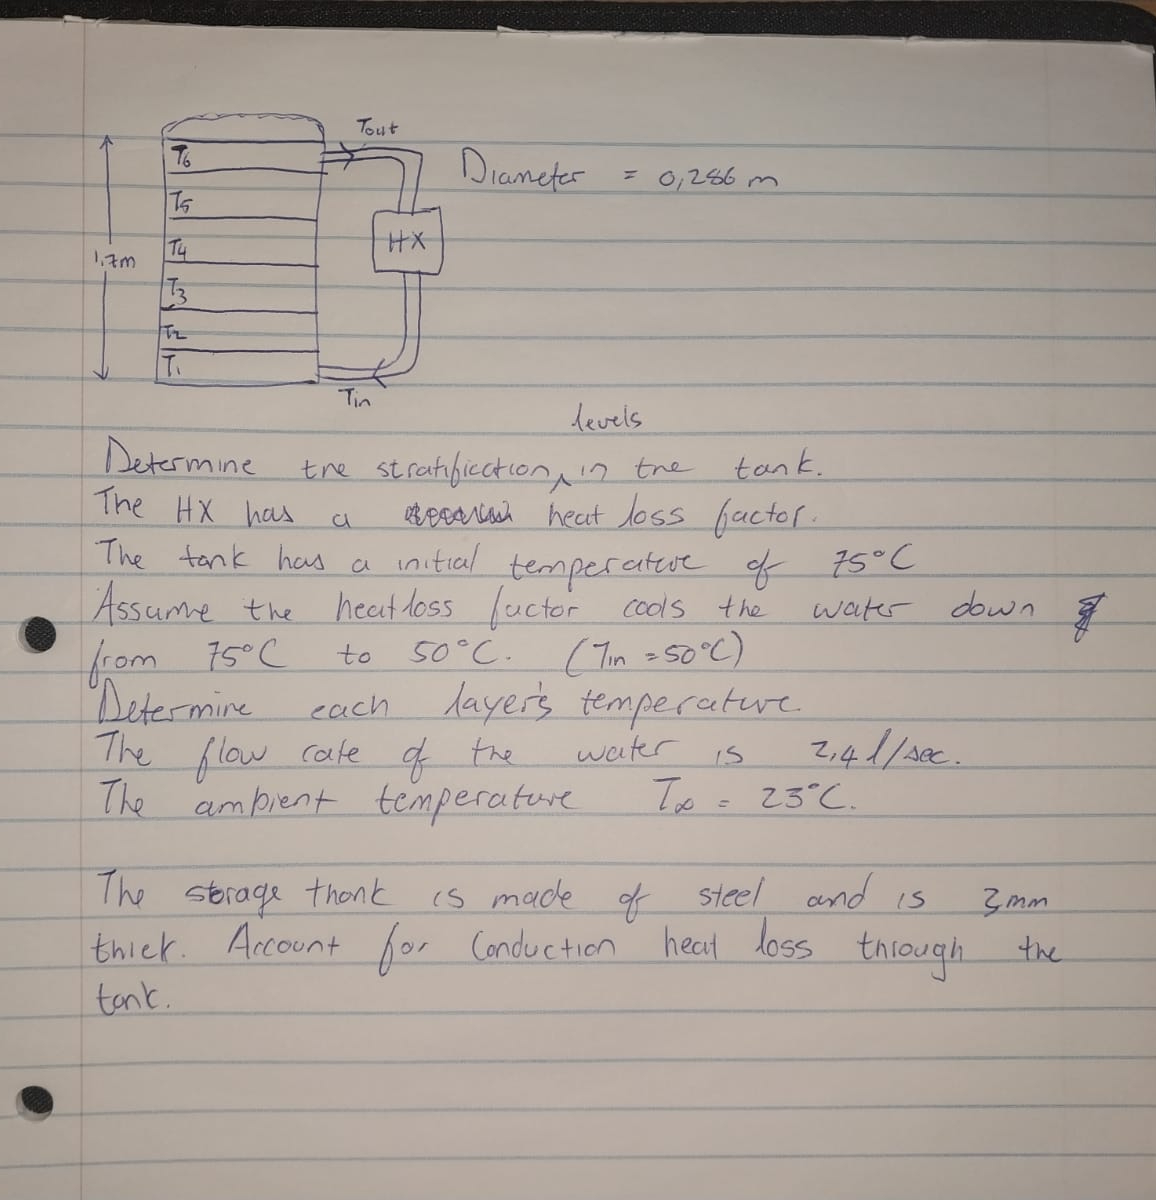 Tout
T6
Diameter = 0,286 m
T5
HX
T4
1,7m
T3
T2
T1
Tin
levels
Determine tne stratification in tne tank.
The HX has a heat loss factor.
The tank has a initial temperature of 75°C
Assume the heatloss factor cools the water down
from 75°C to 50°C. (Tin = 50°C)
Determine each layer's temperature.
The flow rate of the water is 2,4 l/sec.
The ambient temperature T∞ = 23°C.
The storage thank is made of steel and is 3mm
thick. Account for Conduction heat loss through the
tank.